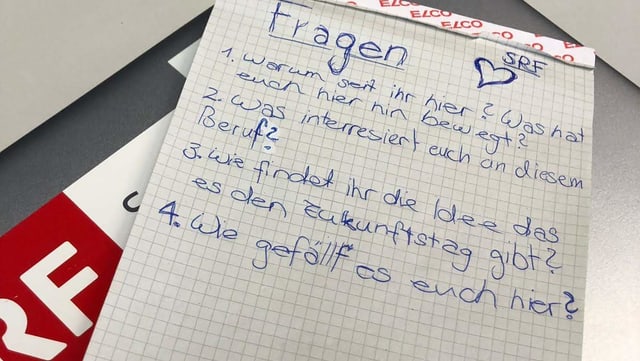 ELCO ELCO ELCO ELCO
Fragen
SRF
1. warum seit ihr hier? Was hat
euch hier hin bewegt?
2. Was interresiert euch an diesem
Beruf?
3. Wie findet ihr die Idee das
es den Zukunftstag gibt?
4. Wie gefällt es euch hier?
RF